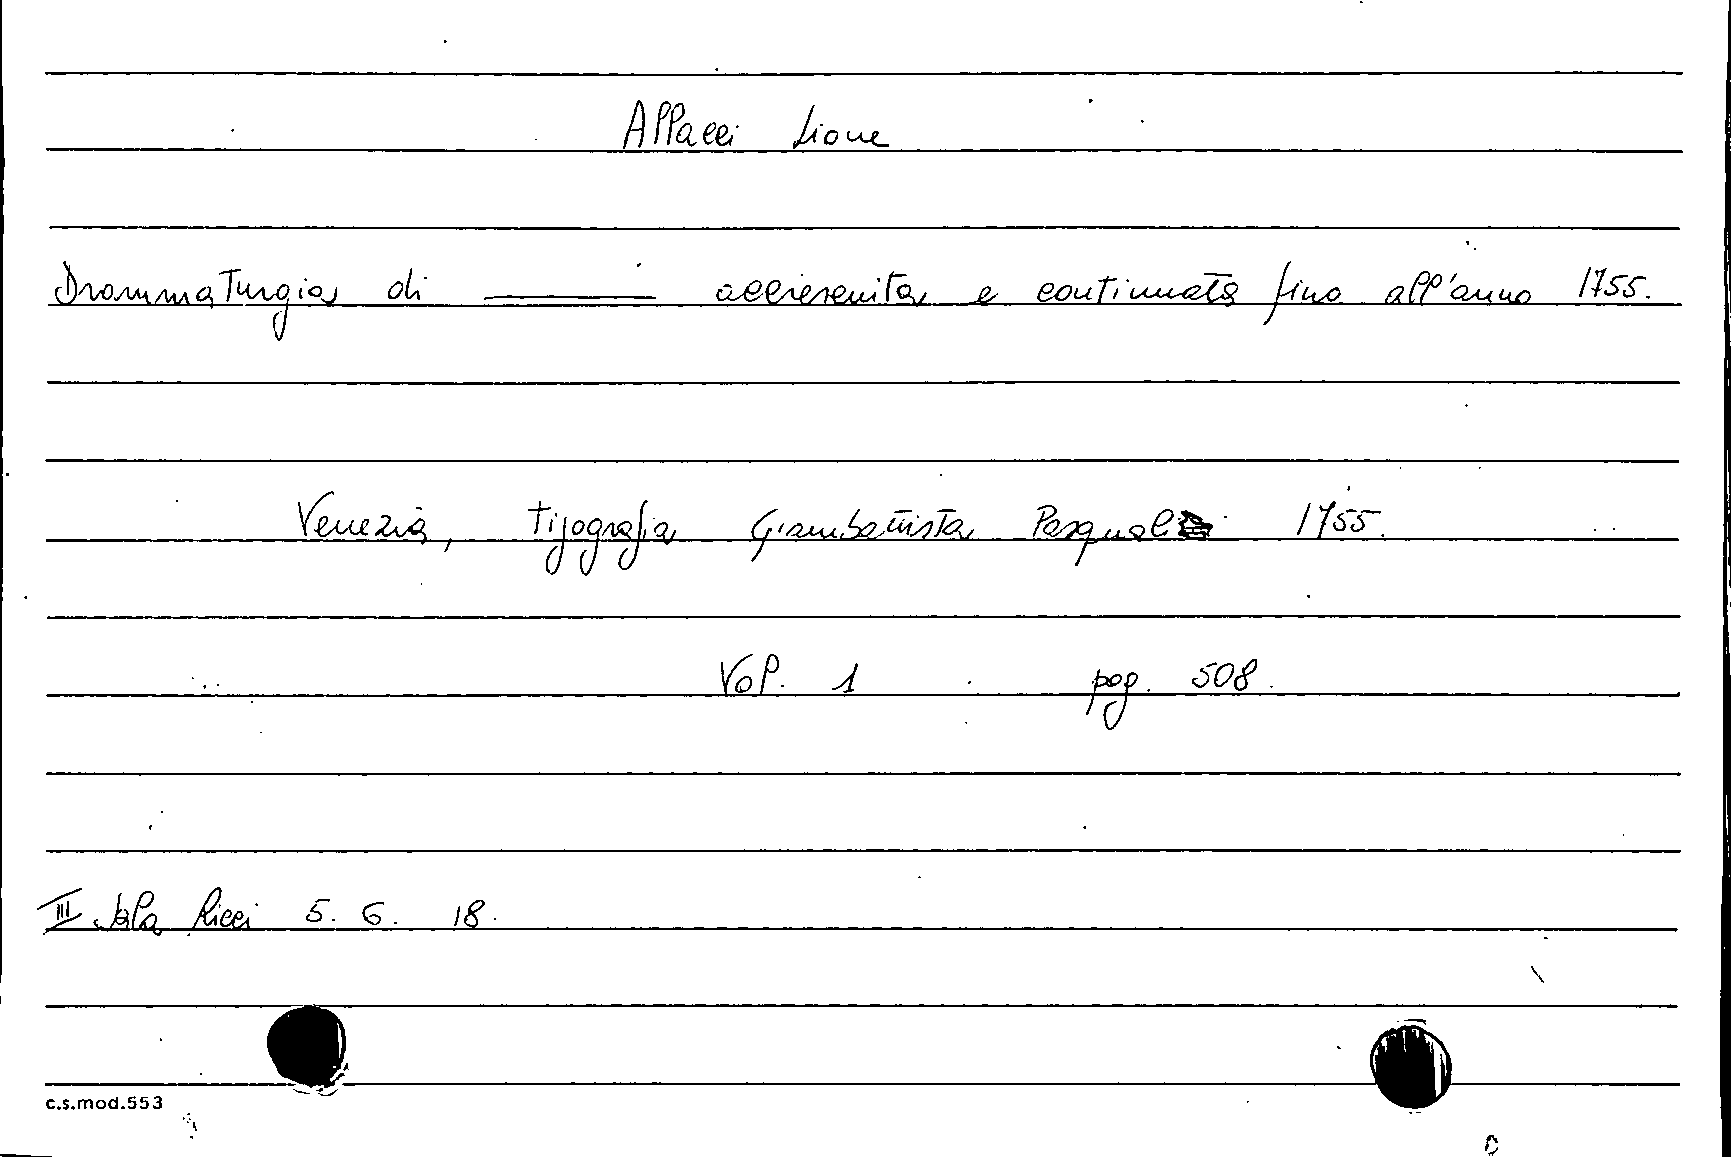 Allacci Lione
Drammaturgia di ———— accresciuta e continuata fino all'anno 1755.
Venezia, Tipografia Giambattista Pasquali 1755.
Vol. 1 pag. 508.
III Sala Ricci 5. 6. 18.
c.s.mod.553